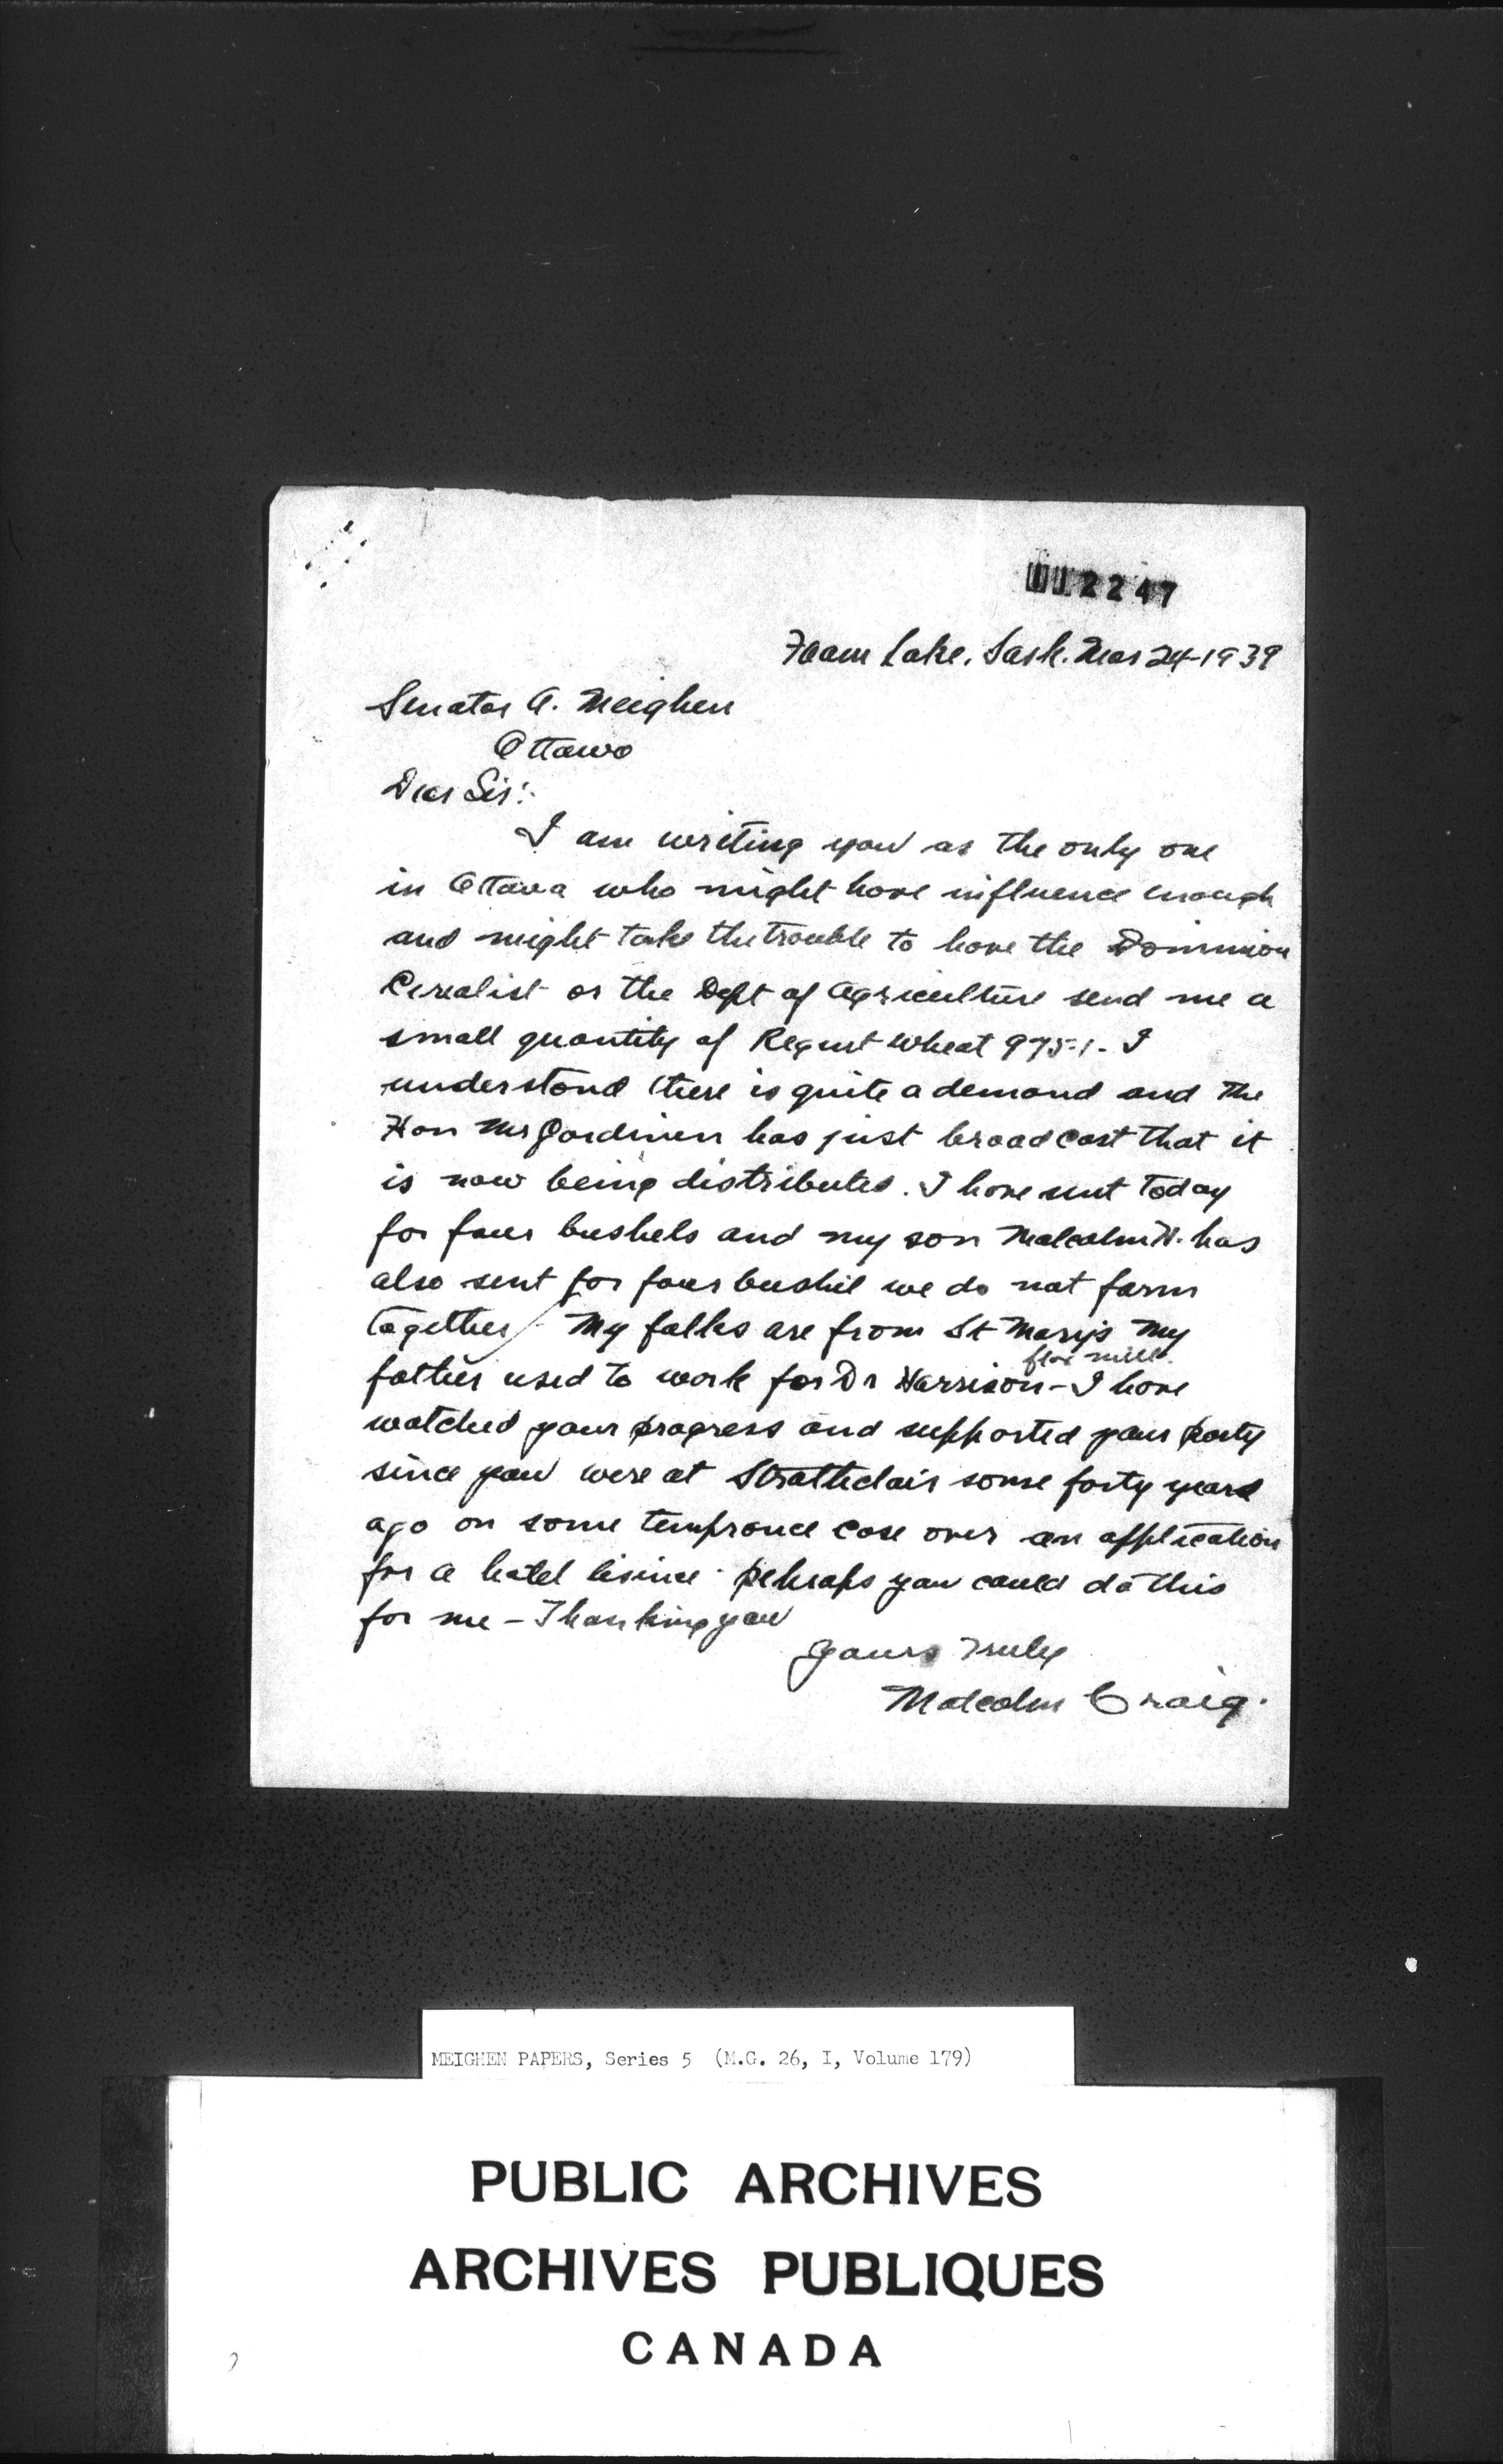 112247
Foam Lake, Sask. Mar 24-1939
Senator A. Meighen
Ottawa
Dear Sir:-
I am writing you as the only one
in Ottawa who might have influence enough
and might take the trouble to have the Dominion
Cerealist or the Dept of Agriculture send me a
small quantity of Regent Wheat 975-1- I
understand there is quite a demand and the
Hon Mr Gardiner has just broadcast that it
is now being distributed. I have sent today
for four bushels and my son Malcolm H. has
also sent for four bushel we do not farm
together/- My folks are from St Mary's My
flax mill.
father used to work for Dr Harrison - I have
watched your progress and supported your party
since you were at Strathclair some forty years
ago on some temprance case over an application
for a hotel lisince - perhaps you could do this
for me - Thanking you
Yours Truly
Malcolm Craig.
MEIGHEN PAPERS, Series 5 (M.G. 26, I, Volume 179)
PUBLIC ARCHIVES
ARCHIVES PUBLIQUES
CANADA